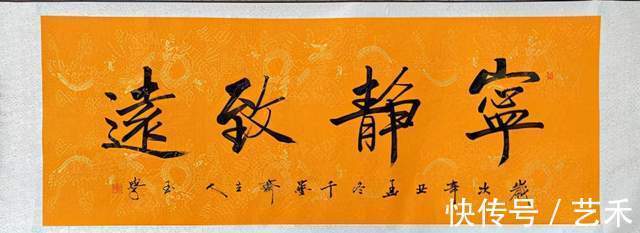 寧靜致遠
歲次辛丑孟冬千墨齋主人玉
快传号 / 艺禾